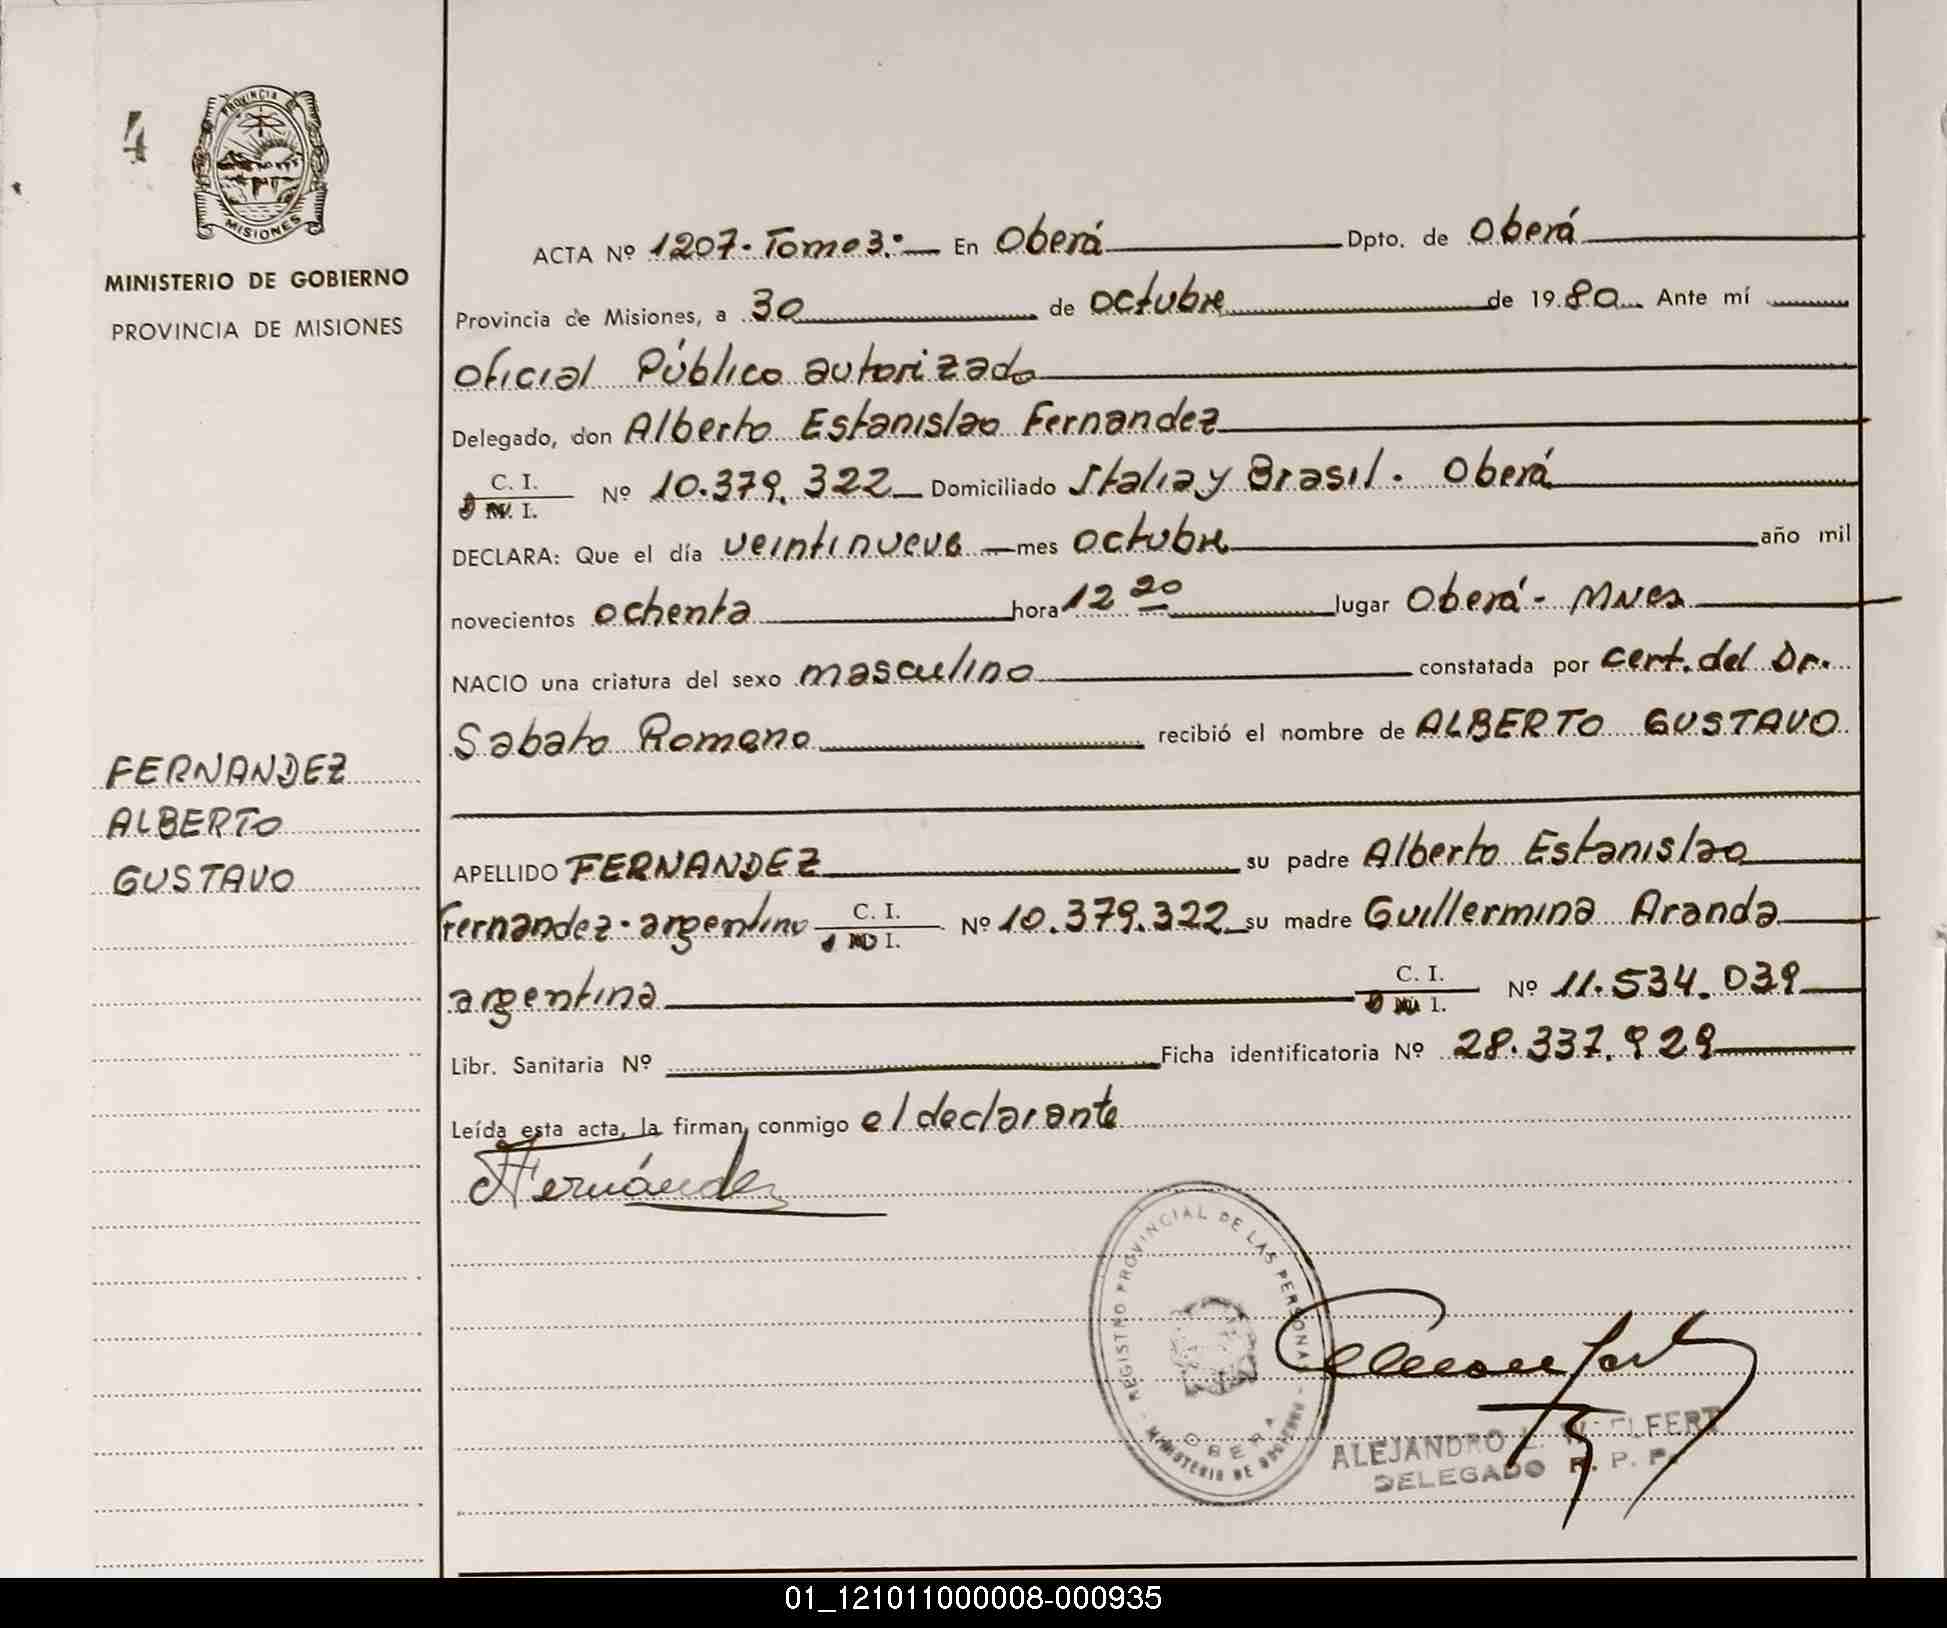 4
PROVINCIA DE
MISIONES
MINISTERIO DE GOBIERNO
PROVINCIA DE MISIONES
FERNANDEZ
ALBERTO
GUSTAVO
ACTA Nº 1207. Tomo 3: En Oberá Dpto. de Oberá
Provincia de Misiones, a 30 de octubre de 1980 Ante mí
Oficial Público autorizado
Delegado, don Alberto Estanislao Fernandez
C. I.
I. Nº 10.379.322 Domiciliado Italia y Brasil. Oberá
DECLARA: Que el día veintinueve mes octubre año mil
novecientos ochenta hora 12 20 lugar Oberá - Mnes
NACIO una criatura del sexo masculino constatada por cert. del Dr.
Sabato Romano recibió el nombre de ALBERTO GUSTAVO
APELLIDO FERNANDEZ su padre Alberto Estanislao
Fernandez. argentino C. I. Nº 10.379.322 su madre Guillermina Aranda
I.
argentina C. I. Nº 11.534.039
I.
Libr. Sanitaria Nº Ficha identificatoria Nº 28.337.929
Leída esta acta, la firman conmigo el declarante
Fernández
REGISTRO PROVINCIAL DE LAS PERSONAS
OBERA
MINISTERIO DE GOBIERNO
ALEJANDRO
DELEGADO R. P. P.
01_121011000008-000935